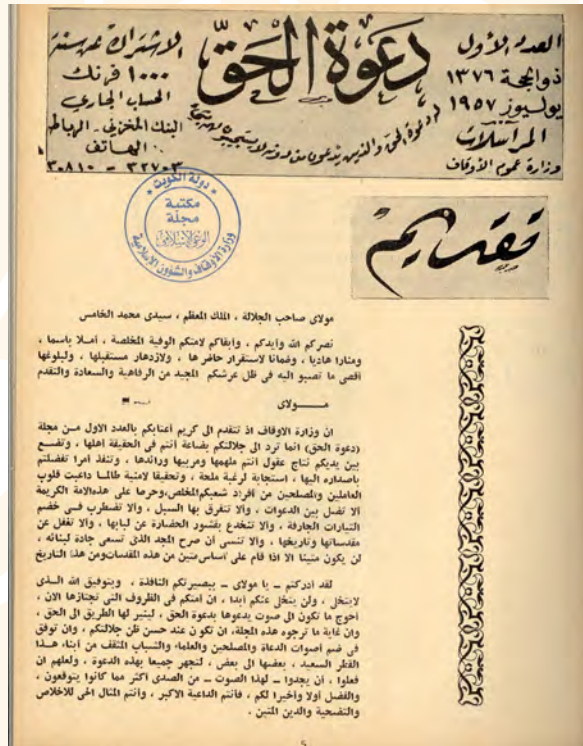 العدد الأول
ذو الحجة ١٣٧٦
يوليوز ١٩٥٧
المراسلات
وزارة عموم الأوقاف
دعوة الحق
الاشتراك عن سنة
١٠٠٠ فرنك
الحساب الجاري
البنك المخزني - الرباط
الهاتف
٣٢٧٠٣ - ٣٠٨١٠
دولة الكويت
مكتبة
مجلة
الوعي الإسلامي
وزارة الأوقاف والشؤون الإسلامية
تقديم
مولاى صاحب الجلالة ، الملك المعظم ، سيدى محمد الخامس
نصركم الله وأيدكم ، وأبقاكم لامتكم الوفية المخلصة ، أملا باسما ،
ومنارا هاديا ، وضمانا لاستقرار حاضرها ، ولازدهار مستقبلها ، ولبلوغها
أقصى ما تصبو اليه فى ظل عرشكم المجيد من الرفاهية والسعادة والتقدم
مـــولاى
ان وزارة الاوقاف اذ تتقدم الى كريم أعتابكم بالعدد الاول مـن مجلة
(دعوة الحق) انما ترد الى جلالتكم بضاعة أنتم فى الحقيقة أهلها ، وتضـع
بين يديكم نتاج عقول أنتم ملهمها ومربيها ورائدها ، وتنفذ أمرا تفضلتم
باصداره اليها ، استجابة لرغبة ملحة ، وتحقيقا لامنية طالمـا داعبت قلوب
العاملين والمصلحين من أفراد شعبكم المخلص،وحرصا على هذه الامة الكريمة
ألا تضل بين الدعوات ، وألا تتفرق بها السبل ، وألا تضطرب فـى خضم
التيارات الجارفة ، وألا تنخدع بقشور الحضارة عن لبابها ، وألا تغفل عن
مقدساتها وتاريخها ، وألا تنسى أن صرح المجد الذى تسعى جادة لبنائه ،
لن يكون متينا الا اذا قام على أساس متين من هذه المقدسات ومن هذا التاريخ
لقد أدركتم ـ يا مولاى ـ ببصيرتكم النافذة ، وبتوفيق الله الـذى
لايتخل ، ولن يتخل عنكم أبدا ، ان امتكم فى الظروف التى تجتازها الان ،
أحوج ما تكون الى صوت يدعوها بدعوة الحق ، لينير لها الطريق الى الحق ،
وان غاية ما ترجوه هذه المجلة، ان تكون عند حسن ظن جلالتكم ، وان توفق
فى ضم أصوات الدعاة والمصلحين والعلماء والشباب المثقف من أبناء هـذا
القطر السعيد ، بعضها الى بعض ، لتجهر جميعا بهذه الدعوة ، ولعلهم ان
فعلوا ، أن يجدوا ـ لهذا الصوت ـ من الصدى أكثر مما كانوا يتوقعون ،
والفضل أولا وأخيرا لكم ، فأنتم الداعية الاكبر ، وأنتم المثال الحى للاخلاص
والتضحية والدين المتين .
5